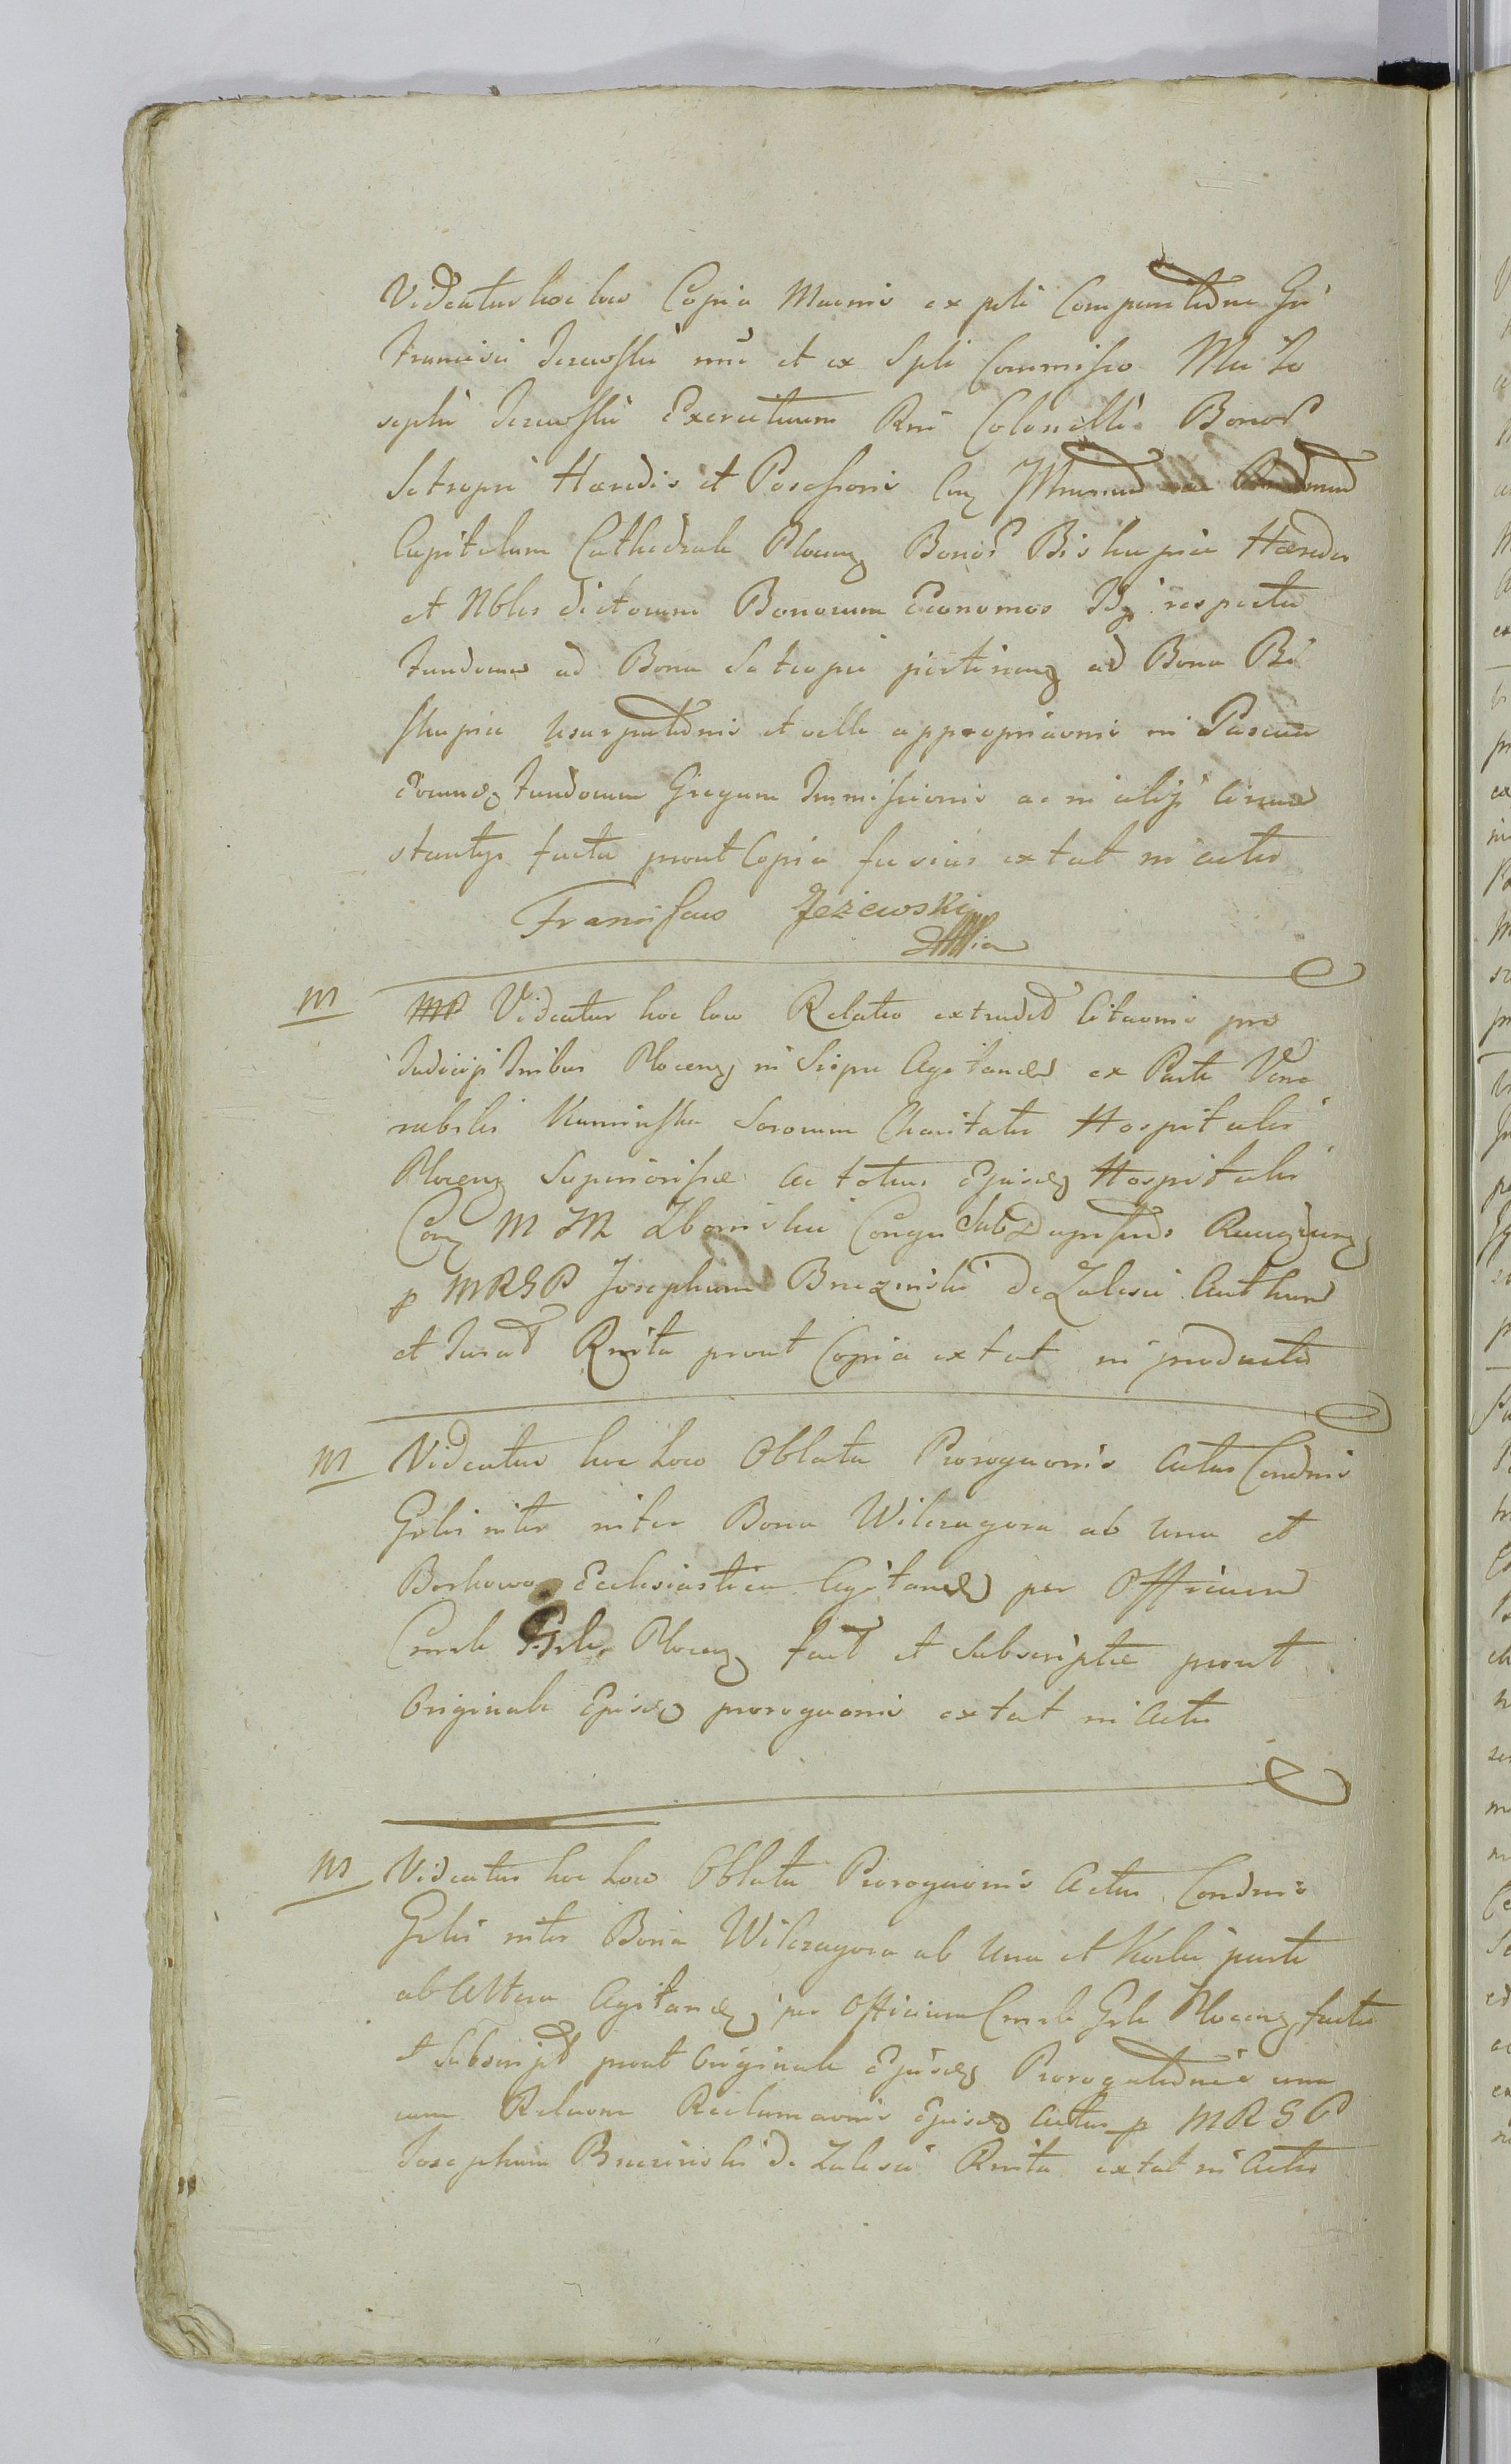 Videatur hoc loco Copia Manif ex psli Comparitione Gsi
Francisci Jezewski mei et ex spli Commisso Mci Jo
sephi Jezewski Exercituum Rni Colonelli Bonor
Setropie Haeredis et Possessoris Cont
Capitulum Cathedrale Plocen Bonor Biskupice Haeredes
et Nbles dictorum Bonorum Economos Idq respectu
fundorum ad Bona Setropie pertinen ad Bona Bi
skupice usurpationis et velle appropriaonis in Pascua
eorund fundorum Gregum Immissionis ac in alijs circum
stantijs facta prout Copia fusius extat in actis
Franciscus Jeżewski
m
Videatur hoc loco Relatio extradit Citaonis pro
Judicijs Tribus Plocen in Scipu Agitandis ex Parte Vene
rabilis Kaminska Sororum Charitatis Hospitalis
Plocen Superiorissae ac totius Ejusd Hospitalis
Con M M Zboinskie Conju SubDapiferos Raciążen
p MRGP Josephum Brzezinski de Zalesie Authen
et Jurat Rnita prout Copia extat in producto
m
Videatur hoc Loco Oblata Prorogaonis Actus Condnis
Grlis inter inter Bona Wilczagora ab una et
Borkowo Ecclesiastica Agitand per Officium
Cmrle Grle Plocen fact et Subscriptae prout
Originale Ejusd prorogaonis extat in Actis
m
Videatur hoc Loco Oblata Prorogaonis Actus Condnis
Grlis inter Bona Wilczagora ab Una et Karlic parte
ab Altera Agitand per Officium Cmrle Grle Plocen facta
et Subscript prout Originale Ejusd Prorogationis una
cum Relaone Reclamaonis Ejusd Actus p MRGP
Josephum Brzezinski de Zalesie Rnita extat in Actis